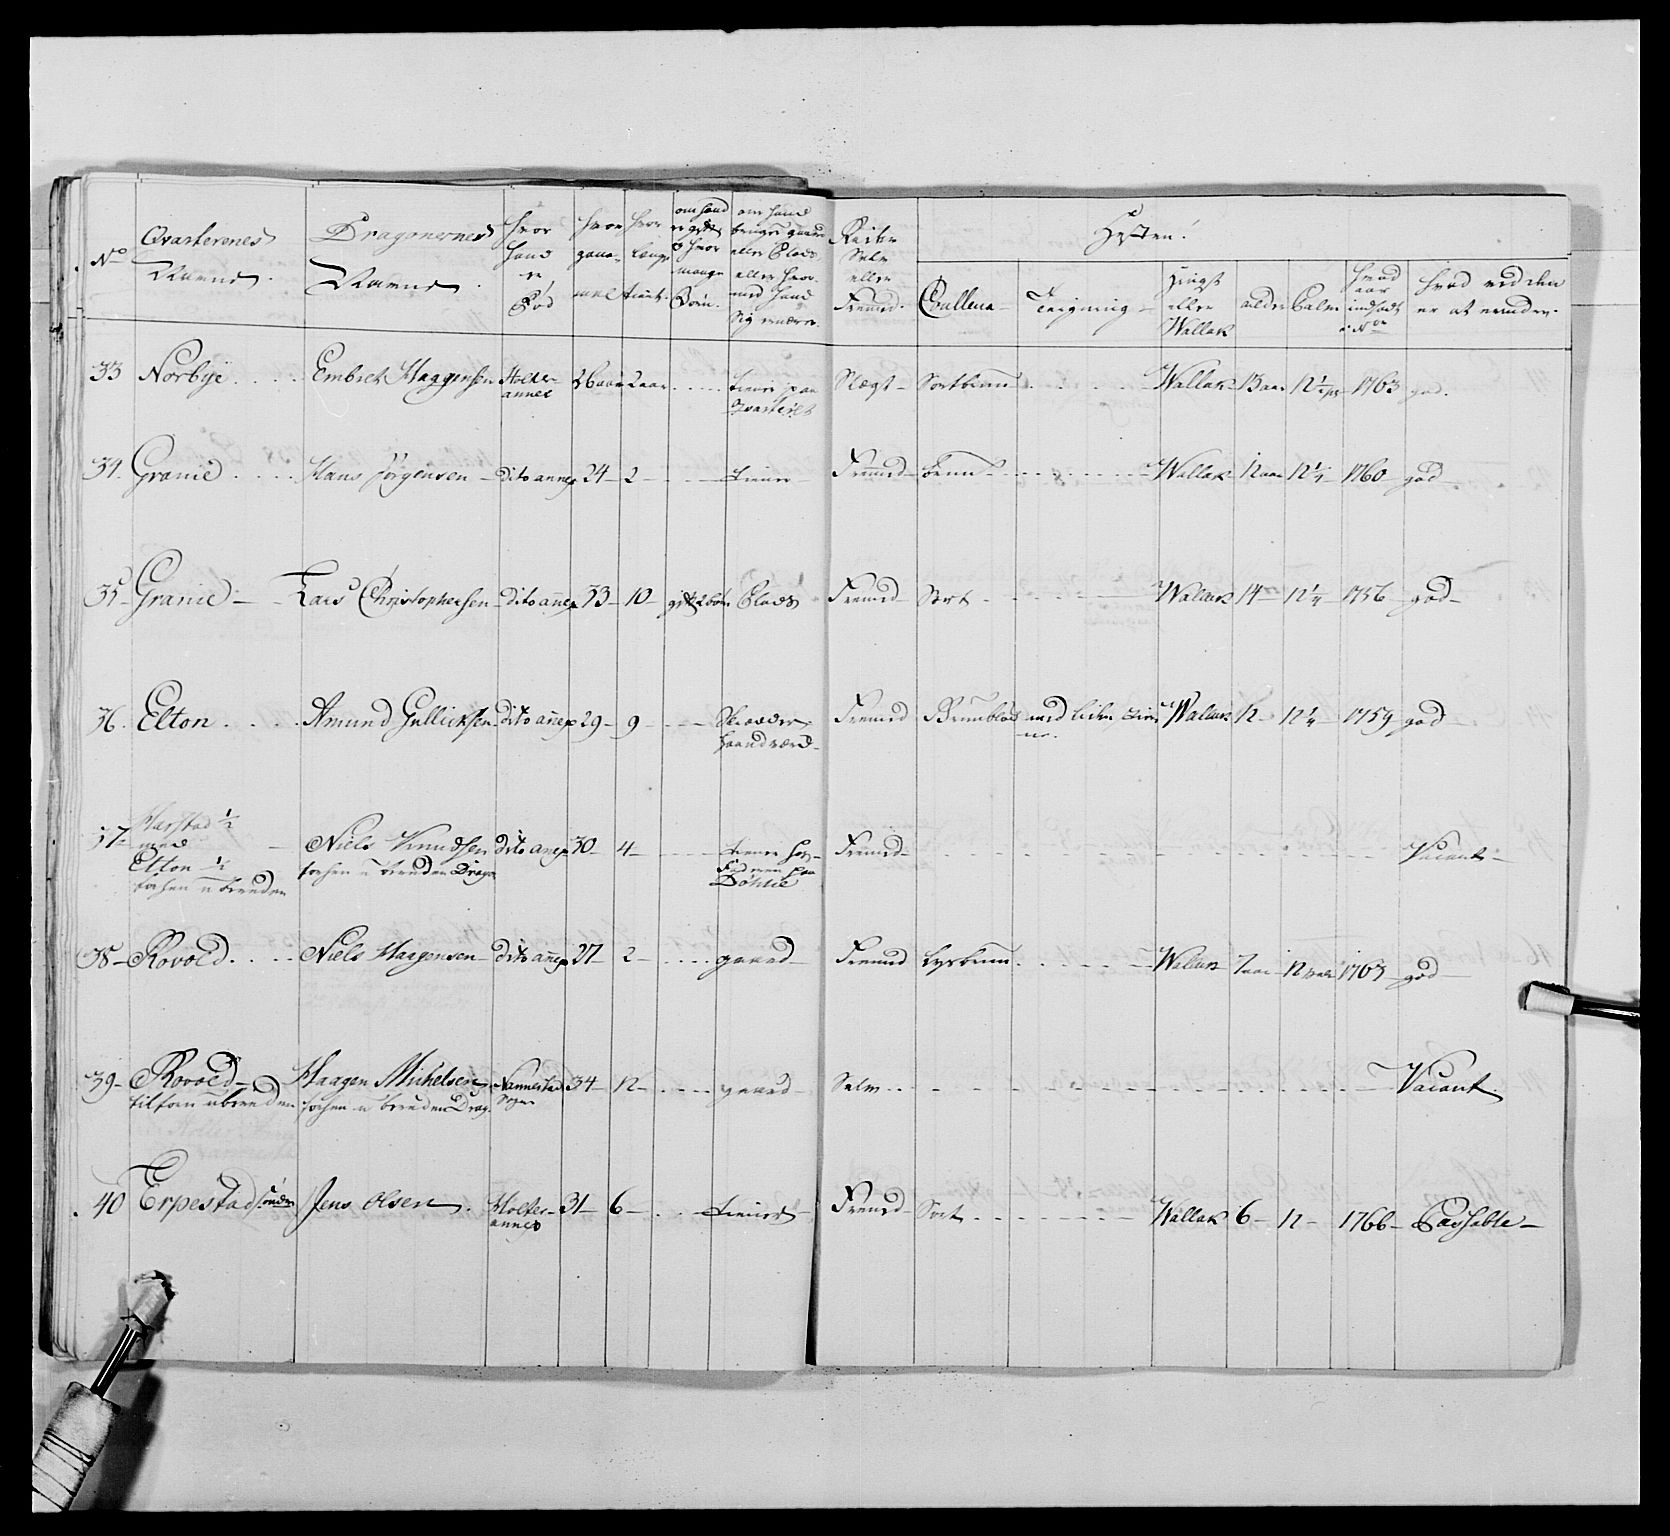 No
Qvarterenes
Navne.
Dragonernes
Navne.
hvor
hand
er
Fød
hvor
gam-
mel
hvor
længe
tient.
om hand
er gift
og hvor
mange
Børn.
om hand
bruger gaard
eller Plads
eller hvor-
med hand
Sig ernærer.
Selv
eller
Fremd.
Hesten.
Couleur
Teigning
Hingst
eller
Wallak
alder
hvad
aar
indsadt
hvad ved den
er at erindre.
33 Norbye Embret Haagensen Holter- annex 26 aar 2 aar tiener paa Qvarteret Slægt Sortbrun Wallak 13 aar 12 1/4 1763 god.
34 Granie Hans Jørgensen dito annex 24 2 tiener Fremd brun Wallak 12 aar 12 1/4 1760 god
35 Granie Lars Christophersen dito anex 33 10 gift 2 børn Plads Fremd Sort Wallak 14 12 1/4 1756 god
36. Elton Amund Gullicksen dito annex 29 9 Skrædder haandværk Fremd Brunblis med liden Wallak 12 12 1/4 1759 god
37 Harstad 1/2 med Elton 1/2 Niels Knudsen dito anex 30 4 tiener hos Faderen paa Døhlie Fremd Vacant
38 Rovold Niels Haagensen dito annex 27 2 gaard Fremd Lysbrun Wallak 7 aar 12 1763 god
39 Rovold Haagen Michelsen Nannestad Sogn 34 12 gaard Selv Vacant
40 Erpestad søndre Jens Olsen Holter- annex 31 6 tiener Fremd Sort Wallak 6 12 1766 Passable